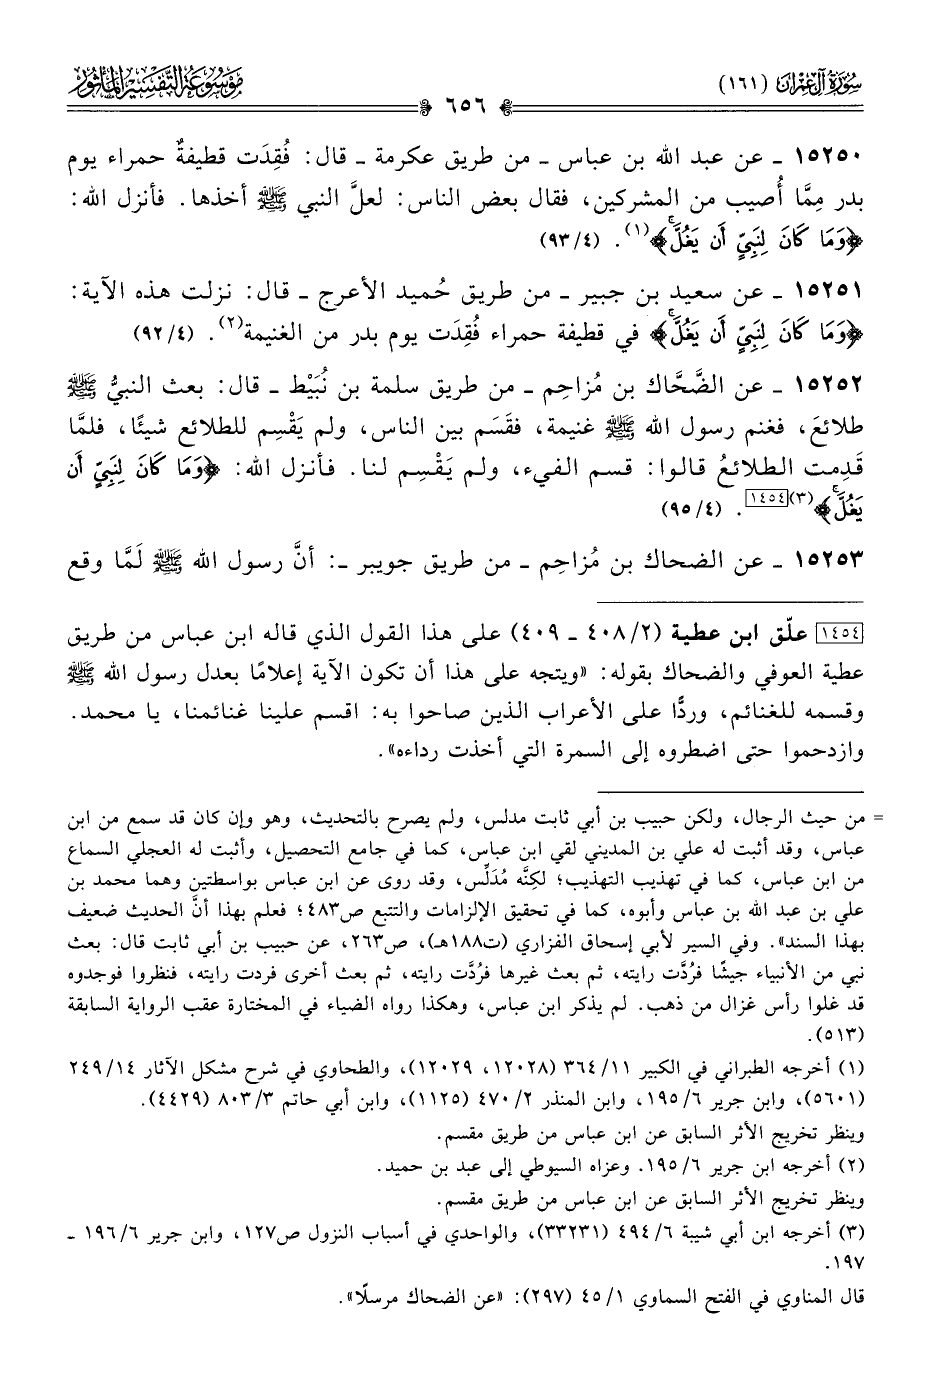 سُورَةُ آلِ عِمْرَانَ (١٦١)
مَوْسُوعَةُ التَّفْسِيرِ المَأْثُورِ
٦٥٦
١٥٢٥٠ ـ عن عبد الله بن عباس ـ من طريق عكرمة ـ قال: فُقِدَت قطيفةٌ حمراء يوم
بدر مِمَّا أُصيب من المشركين، فقال بعض الناس: لعلَّ النبي ﷺ أخذها. فأنزل الله:
﴿وَمَا كَانَ لِنَبِيٍّ أَن يَغُلَّۚ﴾(١). (٤/ ٩٣)
١٥٢٥١ ـ عن سعيد بن جبير ـ من طريق حُميد الأعرج ـ قال: نزلت هذه الآية:
﴿وَمَا كَانَ لِنَبِيٍّ أَن يَغُلَّۚ﴾ في قطيفة حمراء فُقِدَت يوم بدر من الغنيمة(٢). (٤/ ٩٢)
١٥٢٥٢ ـ عن الضَّحَّاك بن مُزاحِم ـ من طريق سلمة بن نُبَيْط ـ قال: بعث النبيُّ ﷺ
طلائعَ، فغنم رسول الله ﷺ غنيمة، فقَسَم بين الناس، ولم يَقْسِم للطلائع شيئًا، فلمَّا
قَدِمت الطلائعُ قالوا: قسم الفيء، ولم يَقْسِم لنا. فأنزل الله: ﴿وَمَا كَانَ لِنَبِيٍّ أَن
يَغُلَّۚ﴾(٣)[١٤٥٤]. (٤/ ٩٥)
١٥٢٥٣ ـ عن الضحاك بن مُزاحِم ـ من طريق جويبر ـ: أنَّ رسول الله ﷺ لَمَّا وقع
[١٤٥٤] علّق ابن عطية (٢/ ٤٠٨ ـ ٤٠٩) على هذا القول الذي قاله ابن عباس من طريق
عطية العوفي والضحاك بقوله: «ويتجه على هذا أن تكون الآية إعلامًا بعدل رسول الله ﷺ
وقسمه للغنائم، وردًّا على الأعراب الذين صاحوا به: اقسم علينا غنائمنا، يا محمد.
وازدحموا حتى اضطروه إلى السمرة التي أخذت رداءه».
= من حيث الرجال، ولكن حبيب بن أبي ثابت مدلس، ولم يصرح بالتحديث، وهو وإن كان قد سمع من ابن
عباس، وقد أثبت له علي بن المديني لقي ابن عباس، كما في جامع التحصيل، وأثبت له العجلي السماع
من ابن عباس، كما في تهذيب التهذيب؛ لكِنَّه مُدَلِّس، وقد روى عن ابن عباس بواسطتين وهما محمد بن
علي بن عبد الله بن عباس وأبوه، كما في تحقيق الإلزامات والتتبع ص٤٨٣؛ فعلم بهذا أنَّ الحديث ضعيف
بهذا السند». وفي السير لأبي إسحاق الفزاري (ت١٨٨هـ)، ص٢٦٣، عن حبيب بن أبي ثابت قال: بعث
نبي من الأنبياء جيشًا فرُدَّت رايته، ثم بعث غيرها فرُدَّت رايته، ثم بعث أخرى فردت رايته، فنظروا فوجدوه
قد غلوا رأس غزال من ذهب. لم يذكر ابن عباس، وهكذا رواه الضياء في المختارة عقب الرواية السابقة
(٥١٣).
(١) أخرجه الطبراني في الكبير ١١/ ٣٦٤ (١٢٠٢٨، ١٢٠٢٩)، والطحاوي في شرح مشكل الآثار ١٤/ ٢٤٩
(٥٦٠١)، وابن جرير ٦/ ١٩٥، وابن المنذر ٢/ ٤٧٠ (١١٢٥)، وابن أبي حاتم ٣/ ٨٠٣ (٤٤٢٩).
وينظر تخريج الأثر السابق عن ابن عباس من طريق مقسم.
(٢) أخرجه ابن جرير ٦/ ١٩٥. وعزاه السيوطي إلى عبد بن حميد.
وينظر تخريج الأثر السابق عن ابن عباس من طريق مقسم.
(٣) أخرجه ابن أبي شيبة ٦/ ٤٩٤ (٣٣٢٣١)، والواحدي في أسباب النزول ص١٢٧، وابن جرير ٦/ ١٩٦ ـ
١٩٧.
قال المناوي في الفتح السماوي ١/ ٤٥ (٢٩٧): «عن الضحاك مرسلًا».